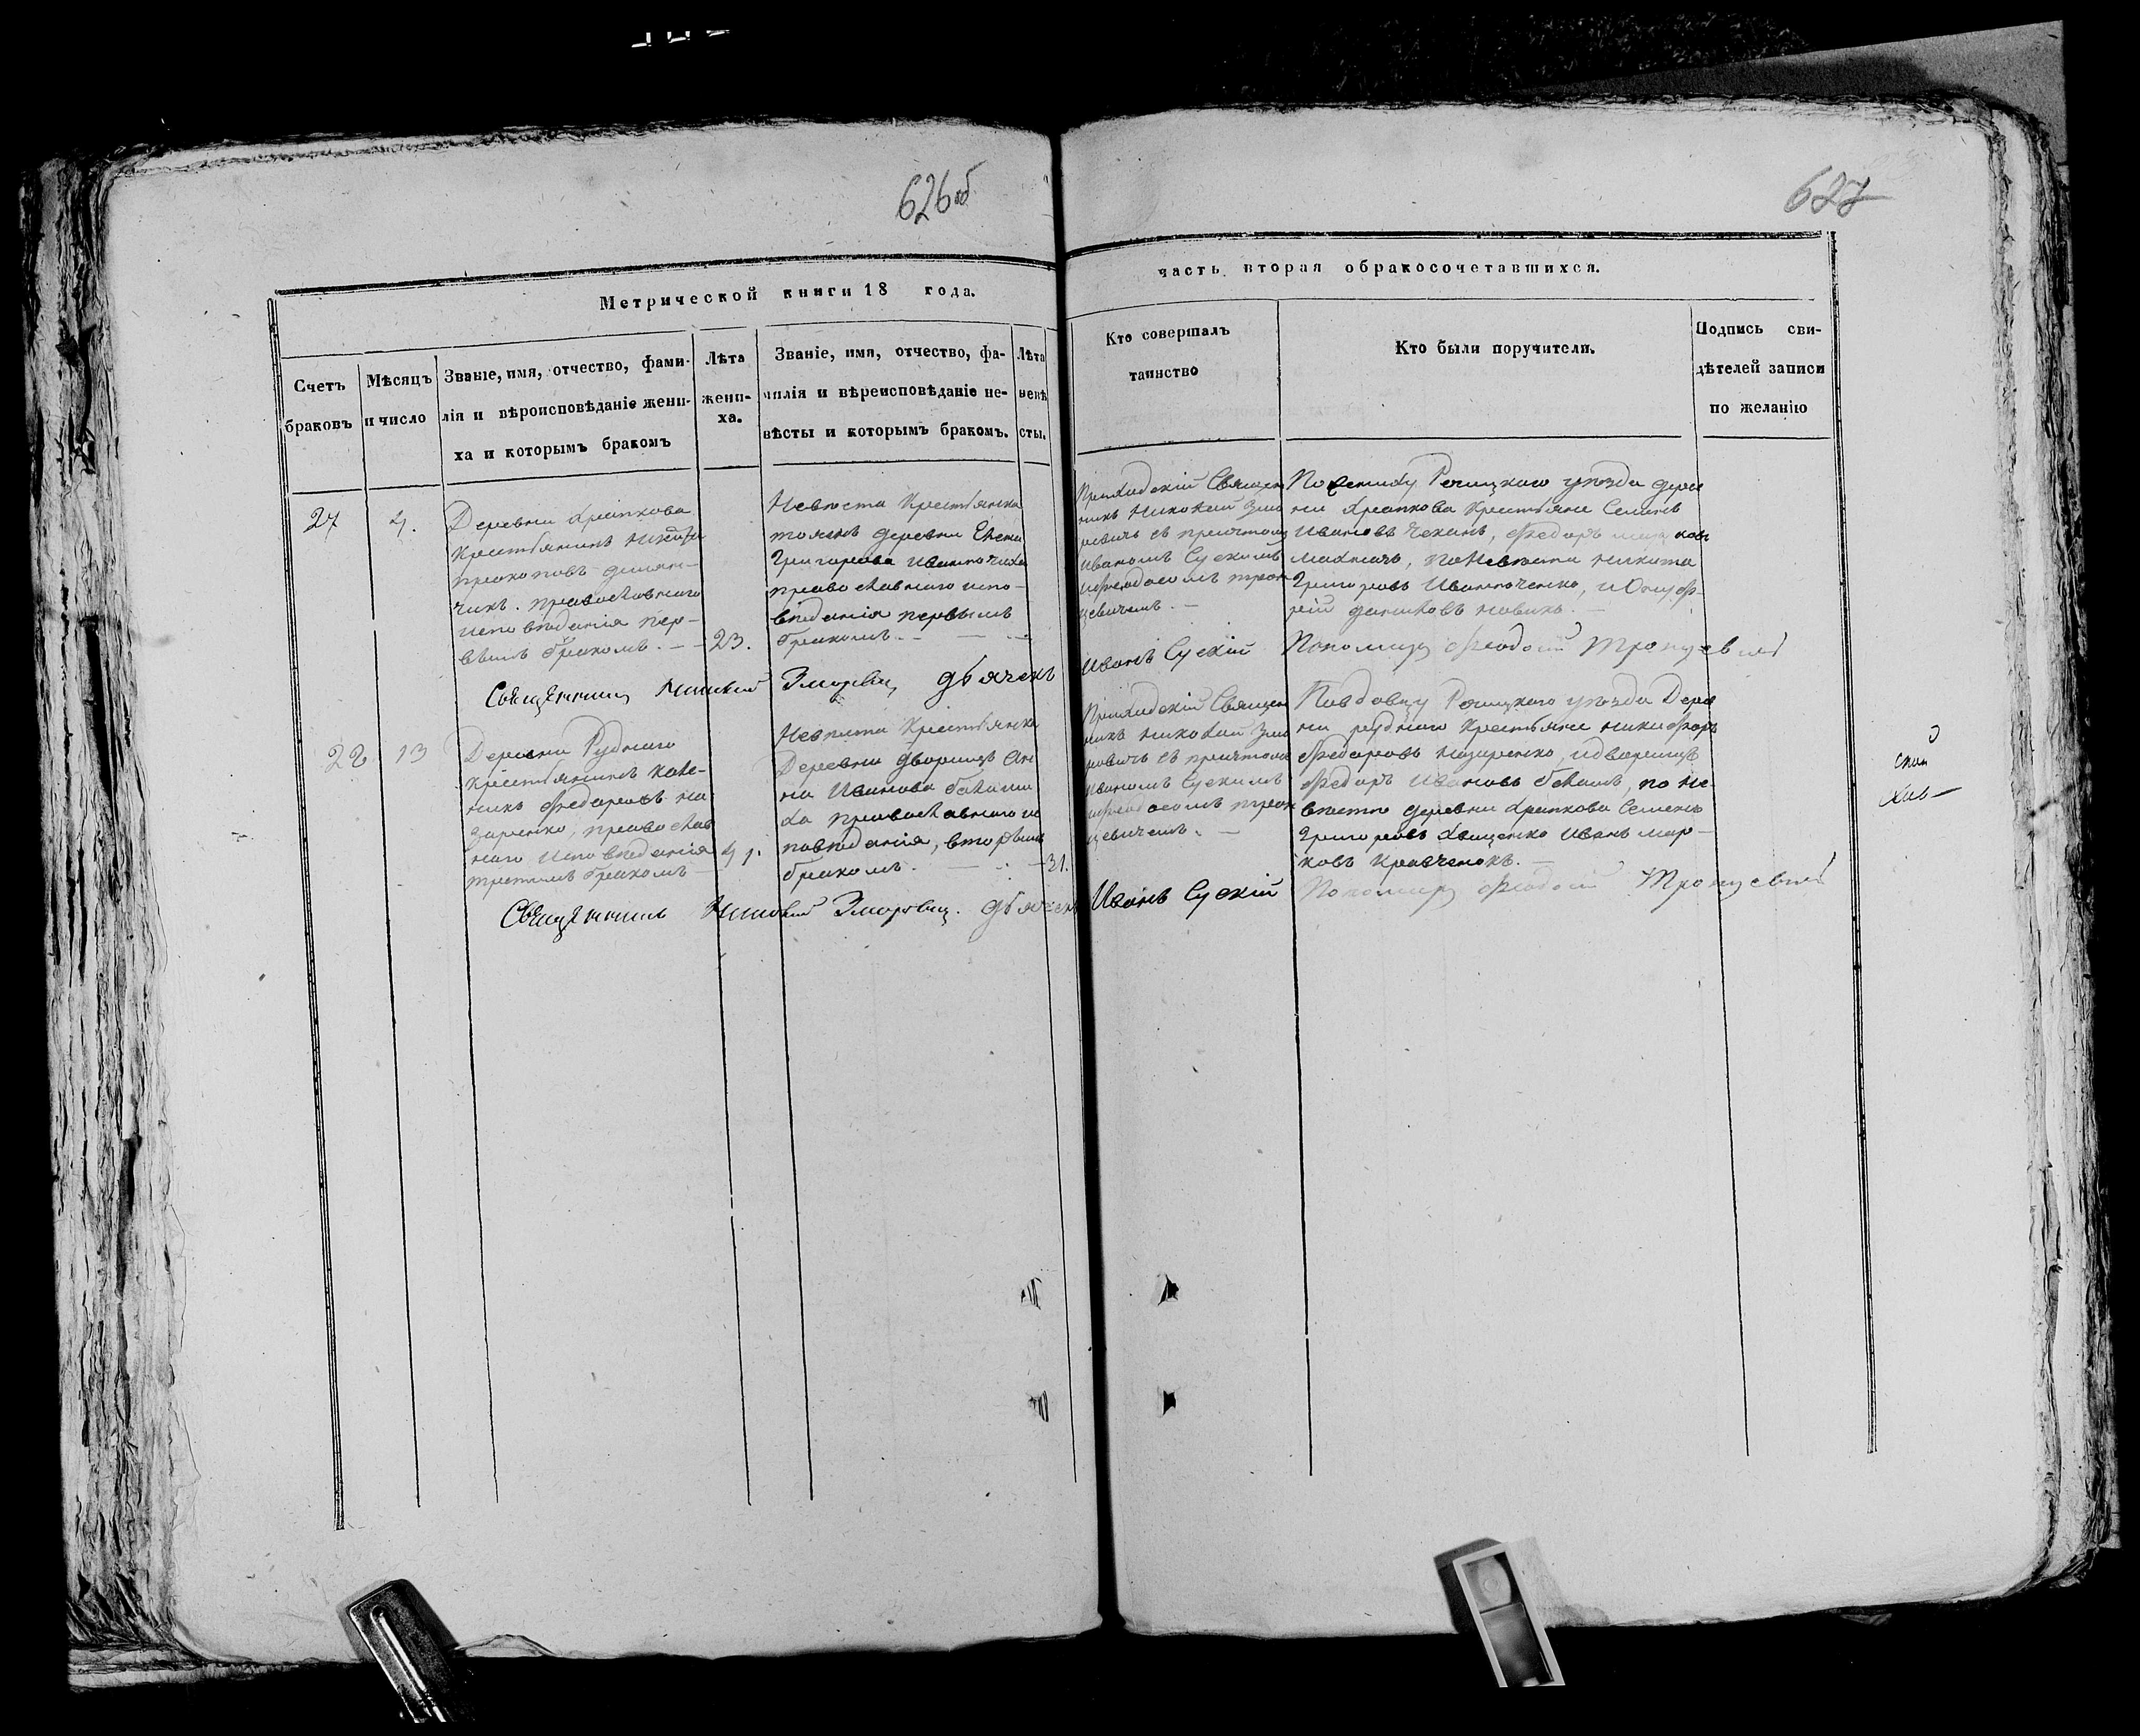 626 об
627
Метрической книги 18 года.
часть вторая обракосочетавшихся.
Счетъ браковъ
Мѣсяцъ и число
Званіе, имя, отчество, фами-
лія и вѣроисповѣданіе жени-
ха и которымъ бракомъ
Лѣта
жени-
ха.
Званіе, имя, отчество, фа-
милія и вѣреисповѣданіе не-
вѣсты и которымъ бракомъ.
Лѣта
невѣ
сты.
Кто совершалъ
таинство
Кто были поручители.
Подпись сви-
дѣтелей записи
по желанію
27
4.
Деревни Храпкова
Крестьянинъ
Прокоповъ
чикъ. православнаго
исповѣданія пер-
вымъ бракомъ. — 23.
Невѣста Крестьянка
тояжъ деревни Елена
Григорьева Иванточиха
православнаго испо-
вѣданія первымъ
бракомъ. —
Приходскій Священ
никъ Николай Змо
ровичъ съ причтомъ
Иваномъ Сускимъ
и Феодосомъ Троп
цевичемъ. —
По Жениху Речицкаго уѣзда дере
вни Храпкова Крестьяне Семенъ
Ивановъ Чеканъ, Федоръ
, по Невѣсти Никита
Григоровъ Иванточенко, и Онуф-
рій Новикъ. —
Священникъ Николай Зморович, дьячекъ Иванъ Сускій Пономарь Феодосій Тропцевичъ
22
13
Деревни Руднаго
Крестьянинъ
никъ Федоровъ На
заренко, православ
наго исповѣданія 41.
третимъ бракомъ —
Невѣста Крестьянка
Деревни Дворищъ Ан
на Иванова
ха православнаго ис
повѣданія, вторымъ
бракомъ. — 31.
Приходскій Священ
никъ Николай Змо
ровичъ съ причтомъ
Иваномъ Сускимъ
и Феодосомъ Троп
цевичемъ. —
По вдовцу Речицкаго уѣзда Дерев
ни Руднаго Крестьяне Никифоръ
Федоровъ Назаренко, и Дворищъ
Федоръ Ивановъ , по не-
вѣсти деревни Храпкова Семенъ
Григоровъ Иванъ Мар-
ковъ Кравченокъ. —
Священникъ Николай Зморович. дьячекъ Иванъ Сускій Пономарь Феодосій Тропцевичъ